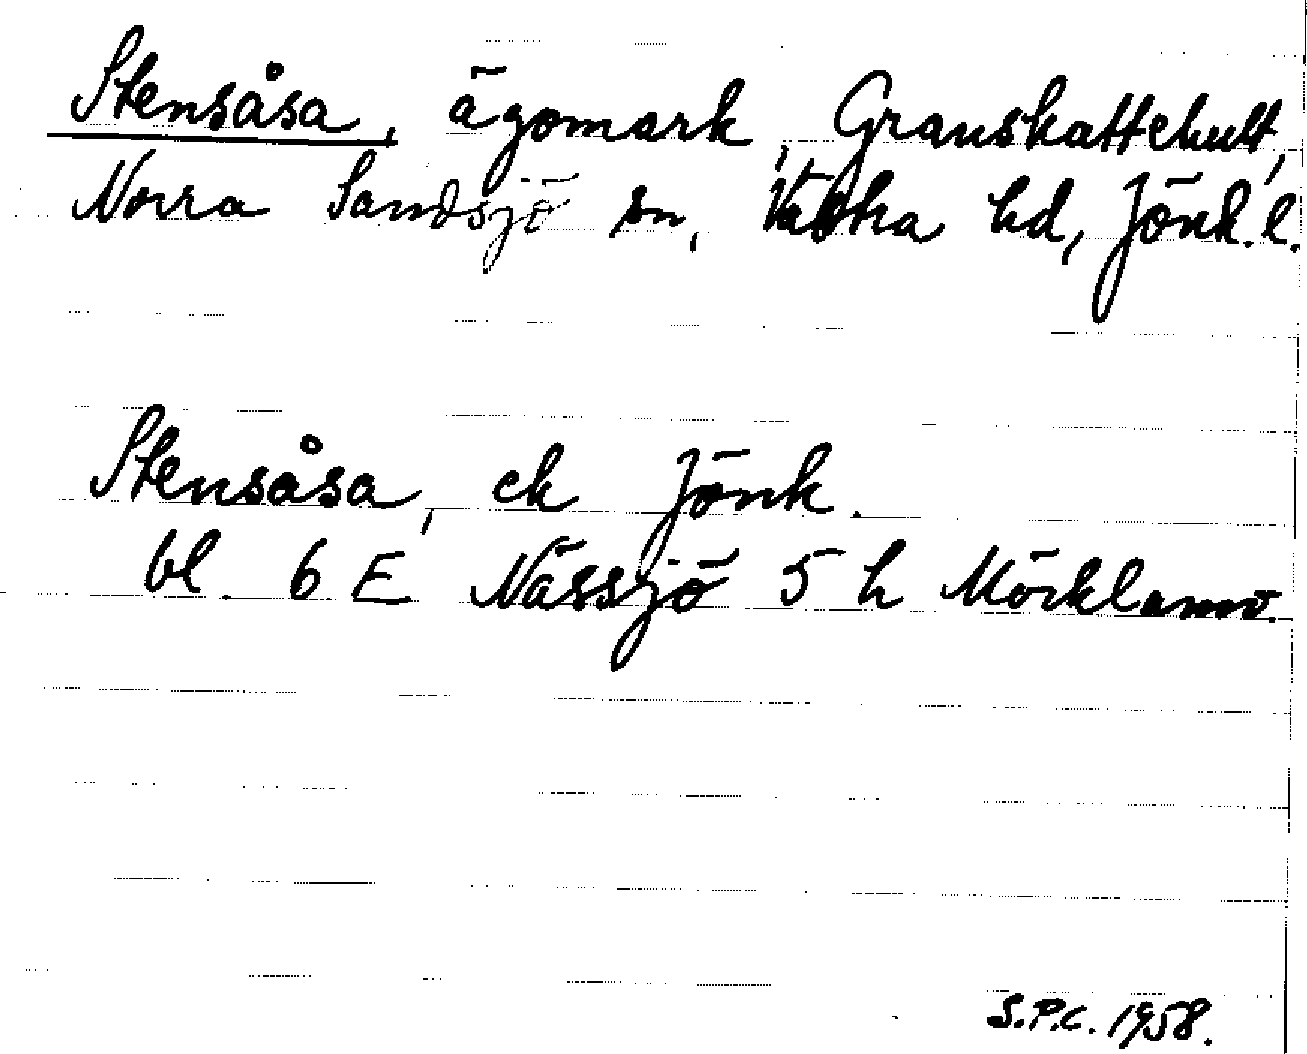 Stensåsa, ägomark, Granskattehult,
Norra Sandsjö sn, Västra hd, Jönk. l.
Stensåsa, ek Jönk.
bl. 6 E Nässjö 5 h
S.P.C. 1958.